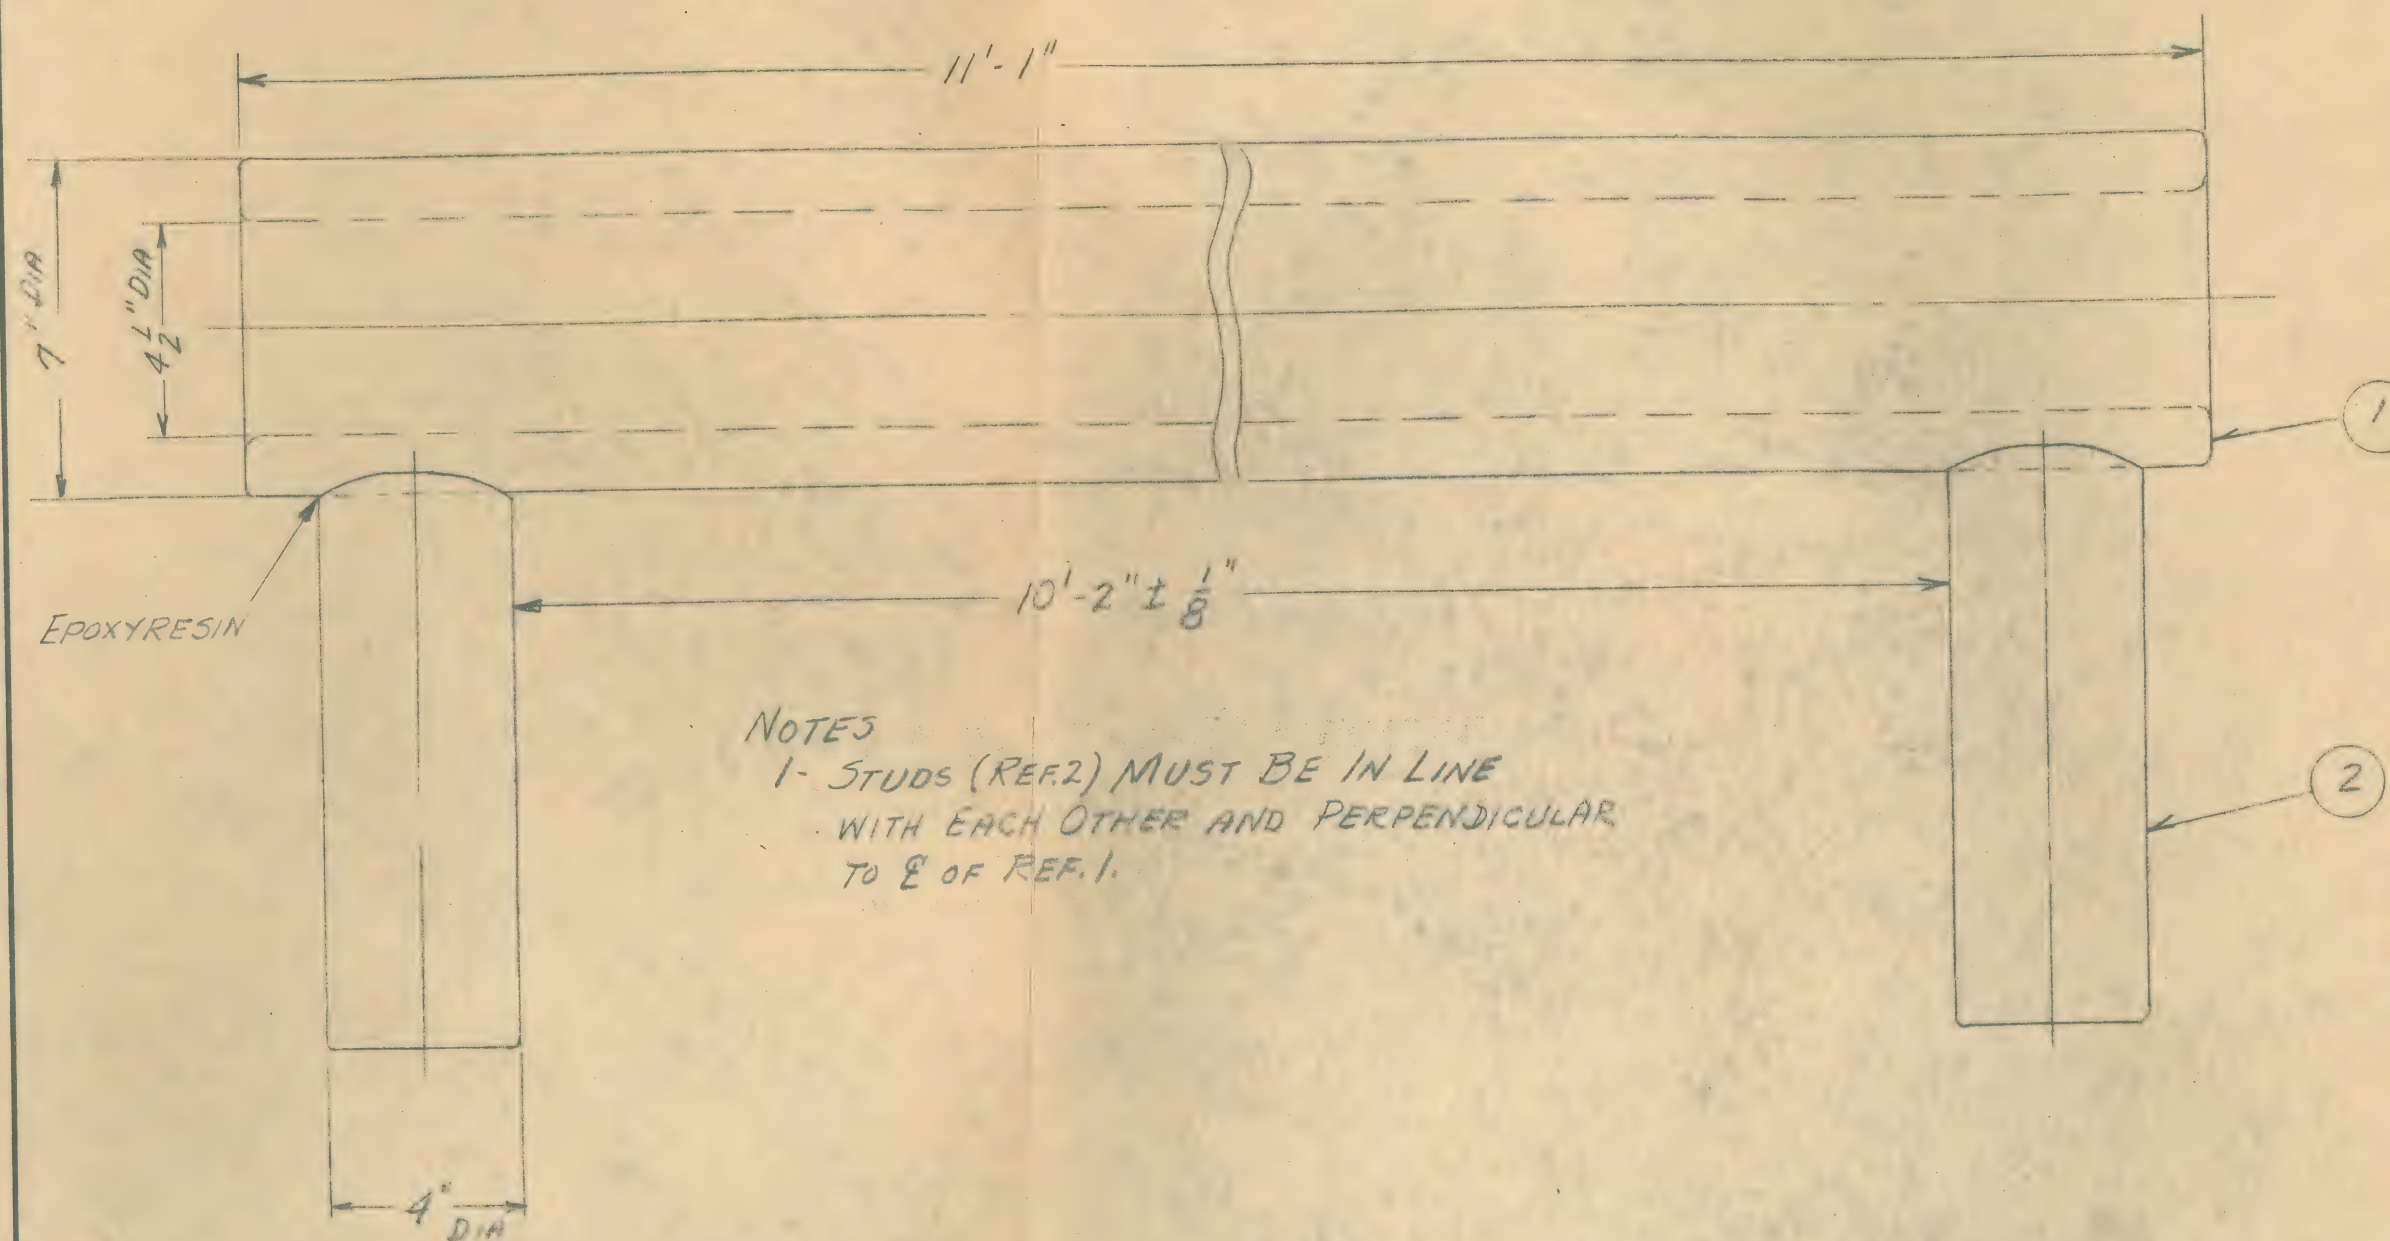 11'-1"
7" DIA
4 1/2" DIA
1
EPOXYRESIN
10'-2" ± 1/8"
NOTES
1- STUDS (REF.2) MUST BE IN LINE
WITH EACH OTHER AND PERPENDICULAR
TO ℄ OF REF. 1.
2
4"
DIA